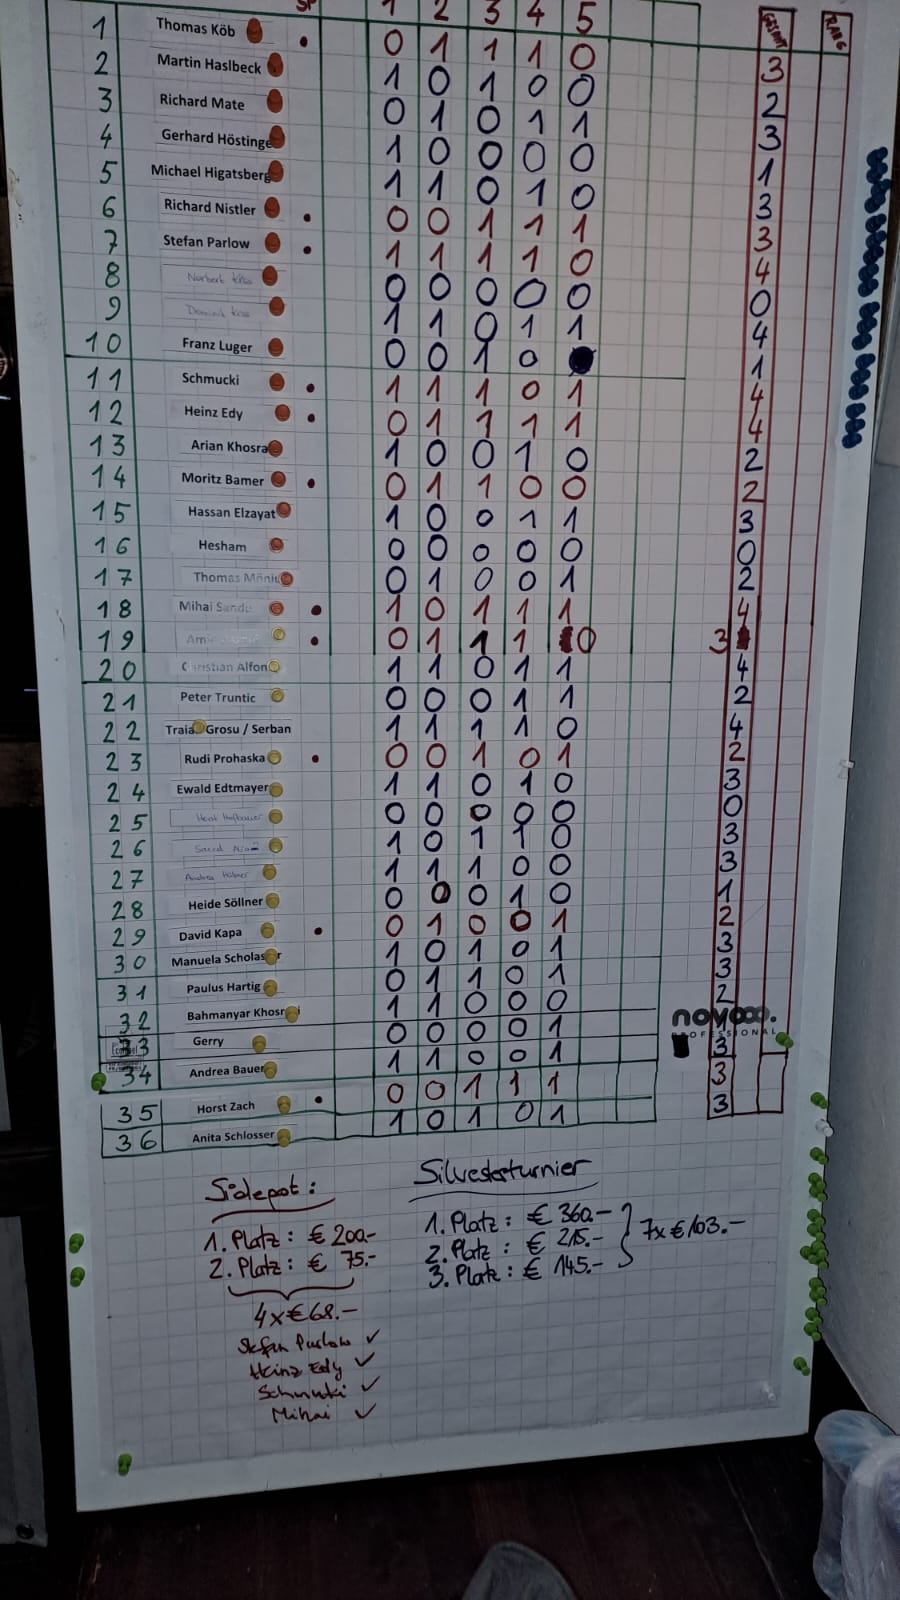 SP 1 2 3 4 5 GESAMT RANG
1 Thomas Köb 0 1 1 1 0 3
2 Martin Haslbeck 1 0 1 0 0 2
3 Richard Mate 0 1 0 1 1 3
4 Gerhard Höstinge 1 0 0 0 0 1
5 Michael Higatsberg 1 1 0 1 0 3
6 Richard Nistler 0 0 1 1 1 3
7 Stefan Parlow 1 1 1 1 0 4
8 Norbert 0 0 0 0 0 0
9 1 1 0 1 1 4
10 Franz Luger 0 0 1 0 1
11 Schmucki 1 1 1 0 1 4
12 Heinz Edy 0 1 1 1 1 4
13 Arian Khosra 1 0 0 1 0 2
14 Moritz Bamer 0 1 1 0 0 2
15 Hassan Elzayat 1 0 0 1 1 3
16 Hesham 0 0 0 0 0 0
17 Thomas 0 1 0 0 1 2
18 Mihai Sandu 1 0 1 1 1 4
19 0 1 1 1 0 3
20 Christian Alfon 1 1 0 1 1 4
21 Peter Truntic 0 0 0 1 1 2
22 Traia Grosu / Serban 1 1 1 1 0 4
23 Rudi Prohaska 0 0 1 0 1 2
24 Ewald Edtmayer 1 1 0 1 0 3
25 0 0 0 0 0 0
26 1 0 1 1 0 3
27 1 1 1 0 0 3
28 Heide Söllner 0 0 0 1 0 1
29 David Kapa 0 1 0 0 1 2
30 Manuela Scholas r 1 0 1 0 1 3
31 Paulus Hartig 0 1 1 0 1 3
32 Bahmanyar Khosr i 1 1 0 0 0 2
33 Gerry 0 0 0 0 1 1
34 Andrea Bauer 1 1 0 0 1 3
35 Horst Zach 0 0 1 1 1 3
36 Anita Schlosser 1 0 1 0 1 3
novo
PROFESSIONAL
Sidepot:
1. Platz: € 200.-
2. Platz: € 75.-
4x€68.-
Stefan Parlow ✓
Heinz Edy ✓
Schmucki ✓
Mihai ✓
Silvesterturnier
1. Platz: € 360.-
2. Platz: € 215.-
3. Platz: € 145.-
7x€103.-